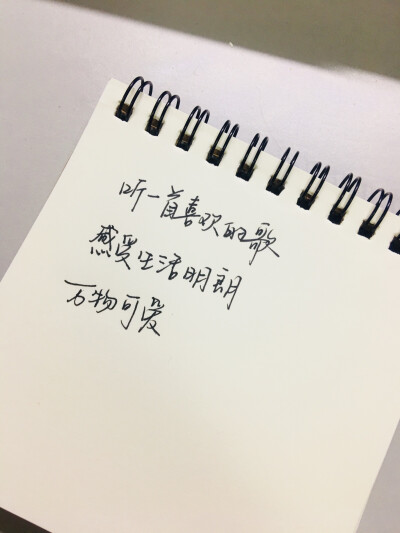 听一首喜欢的歌
感受生活明朗
万物可爱